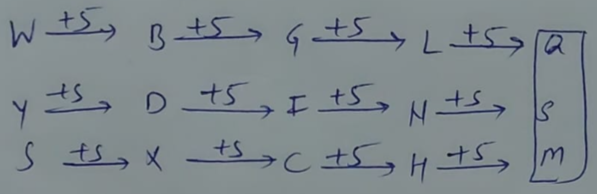 W +5→ B +5→ G +5→ L +5→ Q
Y +5→ D +5→ I +5→ N +5→ S
S +5→ X +5→ C +5→ H +5→ M